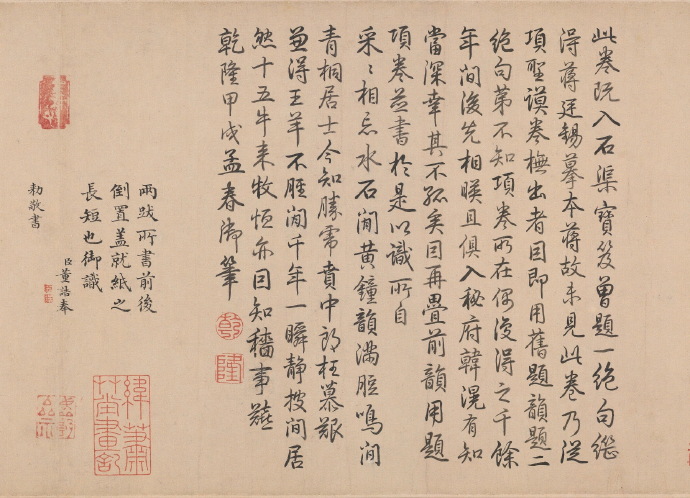 此卷既入石渠寳笈曽題一絶句繼
得蔣廷錫摹本蔣故未見此卷乃従
項聖謨卷橅出者因即用舊題韻題二
絶句第不知項卷所在偶復得之千餘
年間後先相暎且俱入秘府韓滉有知
當深幸其不孤矣因再疊前韻用題
項卷並書於是以識所自
采〻相忘水石間黄鐘韻滿脰鳴間
青桐居士今知勝常賁中郎枉慕艱
兼得王羊不脛間千年一瞬静披間居
然十五牛来牧恒亦因知穡事艱
乾隆甲戌孟春御筆
乾
隆
兩跋所書前後
倒置盖就紙之
長短也御識
臣董誥奉
勅敬書